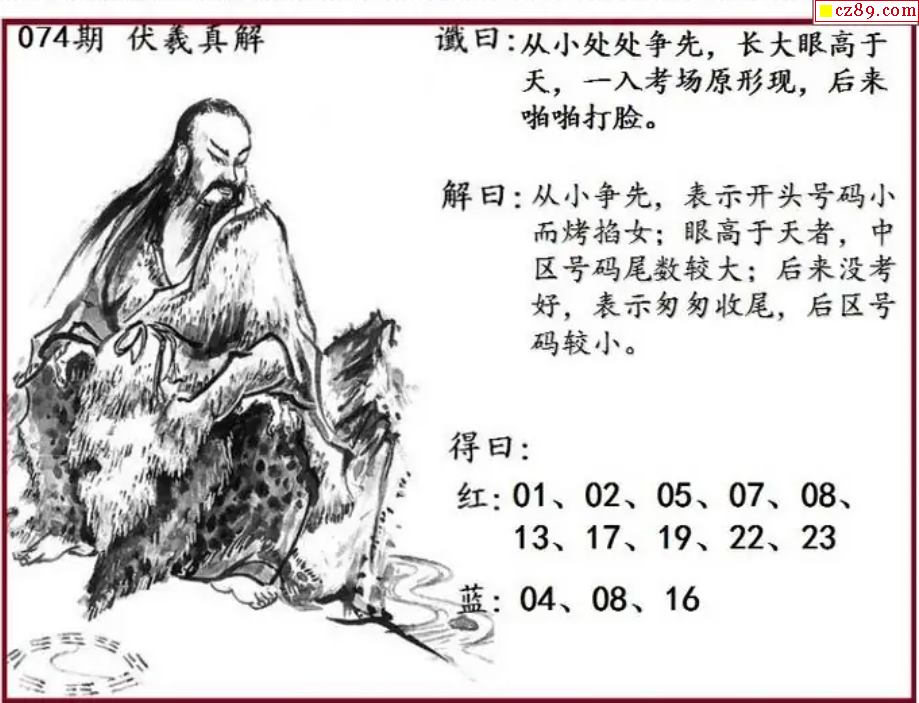 cz89.com
074期 伏羲真解
谶曰:从小处处争先，长大眼高于
天，一入考场原形现，后来
啪啪打脸。
解曰:从小争先，表示开头号码小
而烤掐女；眼高于天者，中
区号码尾数较大；后来没考
好，表示匆匆收尾，后区号
码较小。
得曰:
红:01、02、05、07、08、
13、17、19、22、23
蓝:04、08、16